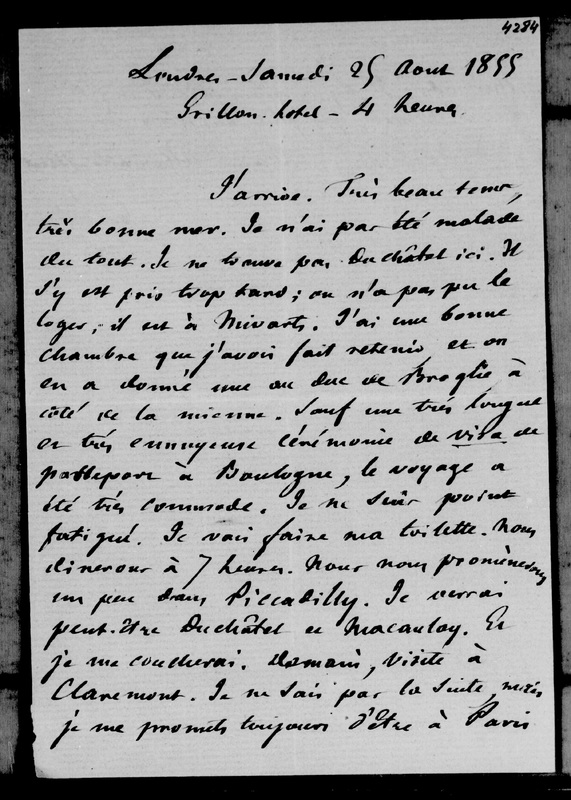 4284
Londres - Samedi 25 Aout 1855
Grillon. hotel - 4 heures
J'arrive. Très beau tems,
très bonne mer. Je n'ai pas été malade
du tout. Je ne trouve pas Duchâtel ici. Il
s'y est pris trop tard ; on n'a pas pu le
loger ; il est à Mivarts. J'ai une bonne
chambre que j'avois fait retenir et on
en a donné une au Duc de Broglie à
côté de la mienne. Sauf une très longue
et très ennuyeuse cérémonie de visa de
passeport à Boulogne, le voyage a
été très commode. Je ne suis point
fatigué. Je vais faire ma toilette. Nous
dinerons à 7 heures. Nous nous promènerons
un peu dans Piccadilly. Je verrai
peut-être Duchâtel et Macaulay. Et
je me coucherai. Demain, visite à
Claremont. Je ne sais pas la suite, mais
je me promets toujours d'être à Paris